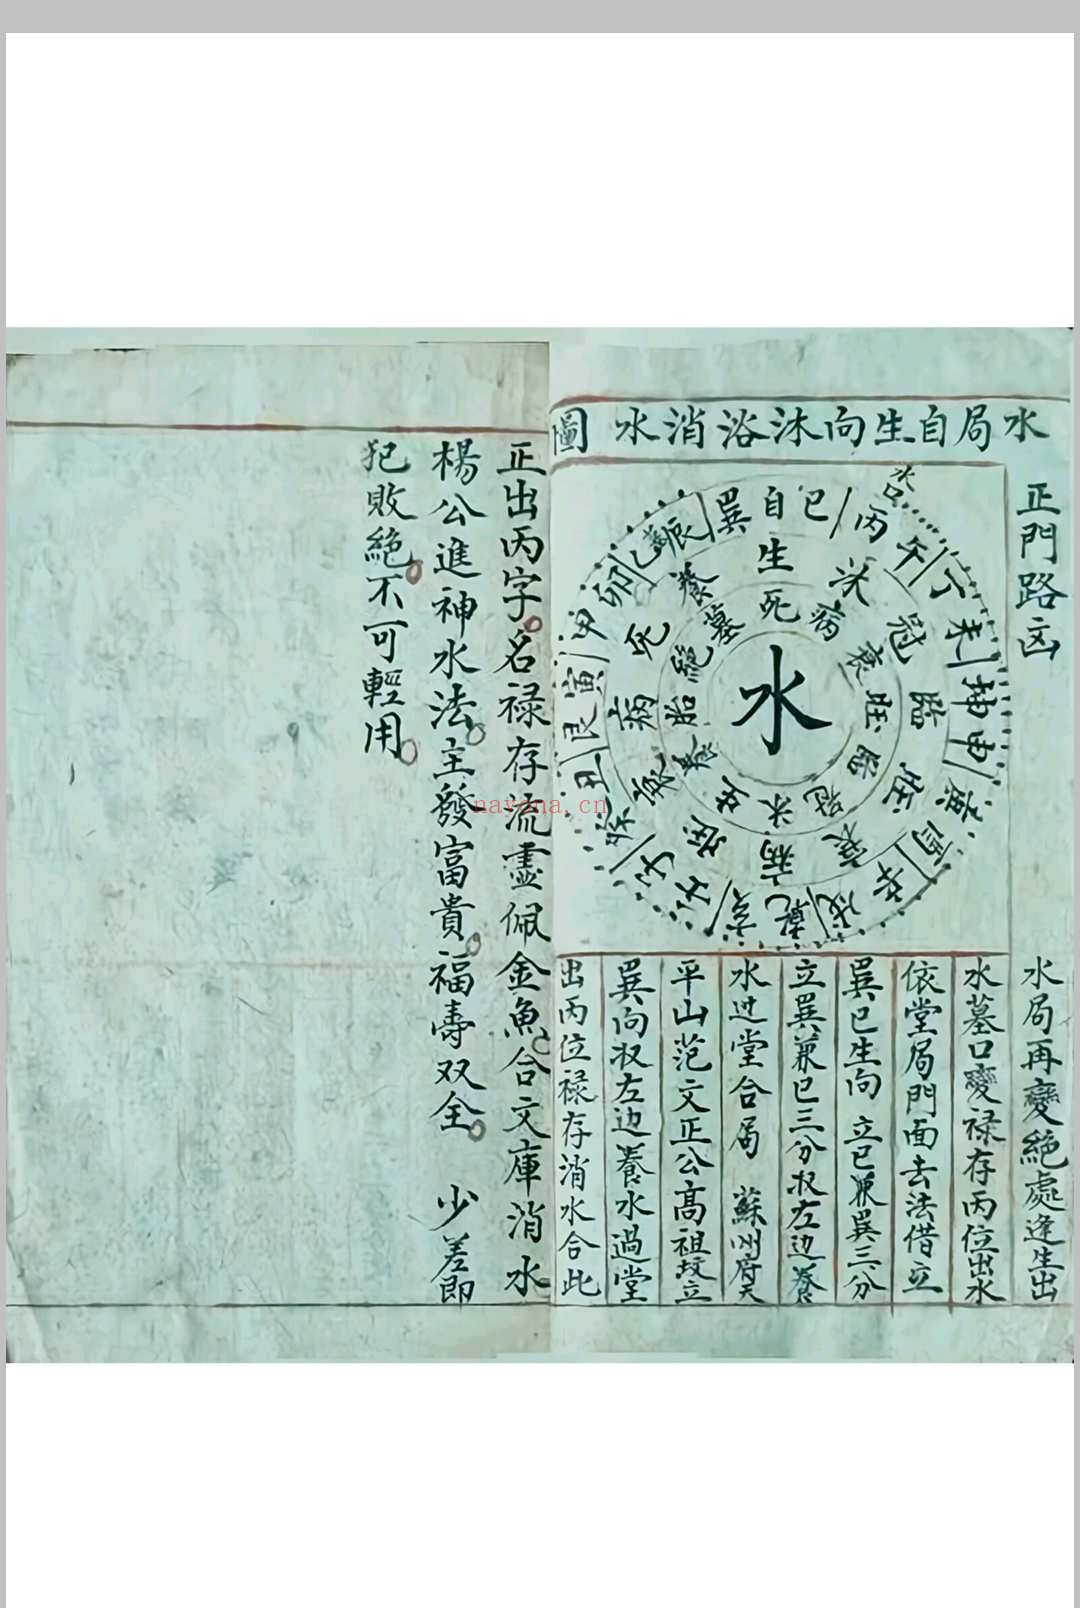 水局自生向沐浴消水圖
正門路凶
水局再變絕處逢生出
水墓口變禄存丙位出水
依堂局門面去法借立
巽巳生向 立巳兼巽三分
立巽兼巳三分收左边養
水过堂合局 蘇州府天
平山范文正公高祖坟立
巽向收左边養水過堂
出丙位禄存消水合此
水
死病衰旺臨冠沐生養胎絕墓
自生沐冠臨旺衰病旺衰病死養
巽巳丙午丁未坤申庚酉辛戌乾亥壬子癸丑艮寅甲卯乙辰
水口
正出丙字名禄存流盡佩金魚合文庫消水
楊公進神水法主發富貴福壽双全 少差即
犯敗絕不可輕用
nayona.cn